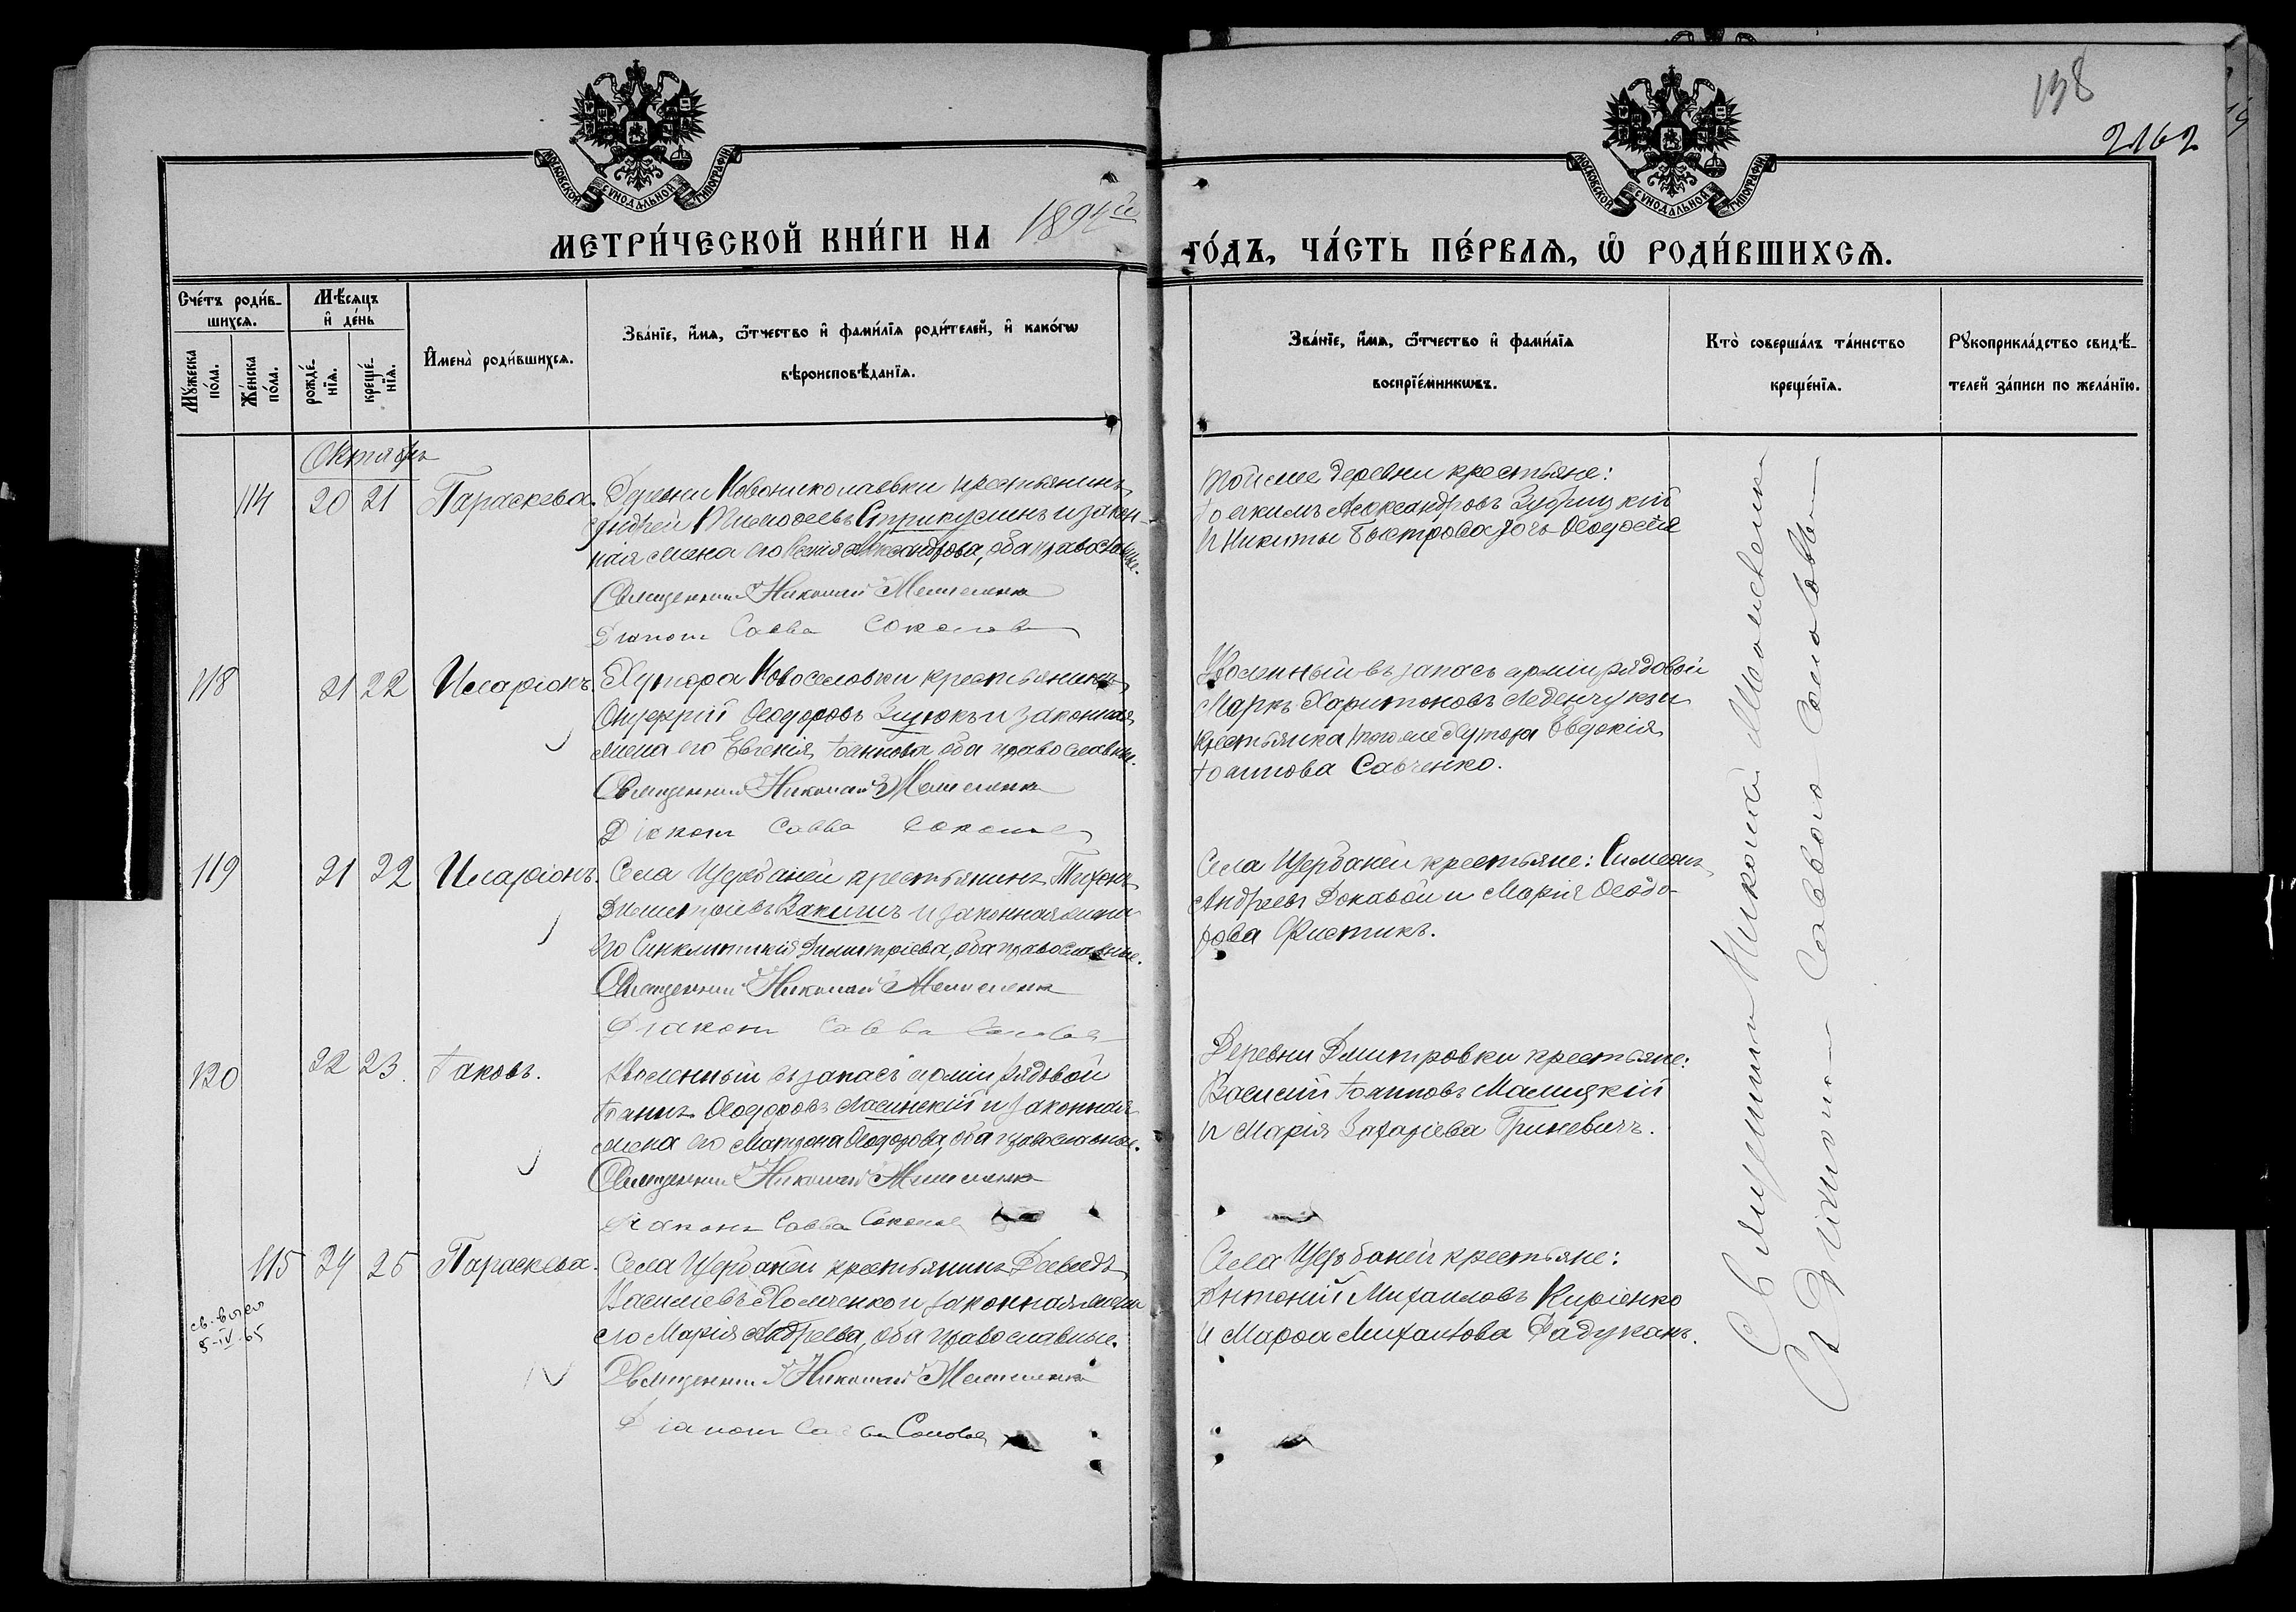 138
2162
МОСКОВСКОЙ СѴНОДАЛЬНОЙ ТИПОГРАФІИ
МОСКОВСКОЙ СѴНОДАЛЬНОЙ ТИПОГРАФІИ
МЕТРИ́ЧЕСКОЙ КНИ́ГИ НА 1894й ГО́ДЪ, ЧА́СТЬ ПЕ́РВАѦ, Ѽ РОДИ́ВШИХСѦ.
Сче́тъ роди́в-
шихсѧ.
Мѣ́сѧцъ
и҆ де́нь
Мꙋ́жеска
по́ла.
Же́нска
по́ла.
рожде́-
нїѧ.
креще́-
нїѧ.
И҆мена̀ роди́вшихсѧ.
Зва́нїе, и҆́мѧ, ѻ҆́тчество и҆ фами́лїѧ роди́телей, и҆ како́гѡ
вѣроисповѣ́данїѧ.
Зва́нїе, и҆́мѧ, ѻ҆́тчество и҆ фами́лїѧ
воспрїе́мникѡвъ.
Кто̀ соверша́лъ та́инство
креще́нїѧ.
Рꙋкоприкла́дство свидѣ́-
телей за́писи по жела́нїю.
Октябрь
114 20 21 Параскева.
Деревни Новониколаевки крестьянинъ
Андрей Тимоѳеевъ и закон-
ная жена его Ксенія Александрова, оба православные.
Священникъ Николай
Діаконъ Савва Соколовъ
Той же деревни крестьяне:
Іоакимъ Александровъ Зубрицкій
и Никиты Быстрова дочь Ѳеодосія
118 21 22 Иларіонъ.
Хутора Новоселовки крестьянинъ
Ѳеодоровъ и законная
жена его Евгенія Іоаннова, оба православные.
Священникъ Николай
Діаконъ Савва Соколовъ
Уволенный въ запасъ арміи рядовой
Маркъ Харитоновъ и
крестьянка того же хутора Евдокія
Іоаннова Савченко.
119 21 22 Иларіонъ.
Села Щербаней крестьянинъ Тихонъ
Димитріевъ и законная жена
его Синклитикія Димитріева, оба православные.
Священникъ Николай
Діаконъ Савва Соколовъ
Села Щербаней крестьяне: Симеонъ
Андреевъ и Марія Ѳеодо-
рова Фистикъ.
120 22 23 Іаковъ.
Уволенный въ запасъ арміи рядовой
Іоаннъ Ѳеодоровъ Ласинскій и законная
жена его Матрона Ѳеодорова, оба православные.
Священникъ Николай
Діаконъ Савва Соколовъ
Деревни Дмитровки крестьяне:
Василій Іоанновъ Малицкій
и Марія Захаріева Гриневичъ.
115 24 25 Параскева.
5-IV-65
Села Щербаней крестьянинъ Давидъ
Василіевъ Хомченко и законная жена
его Марія Андреева, оба православные.
Священникъ Николай
Діаконъ Савва Соколовъ
Села Щербаней крестьяне:
Антоній Михаиловъ Киріенко
и Марѳа Михаилова
Священникъ Николай
Съ Діакономъ Саввою Соколовымъ